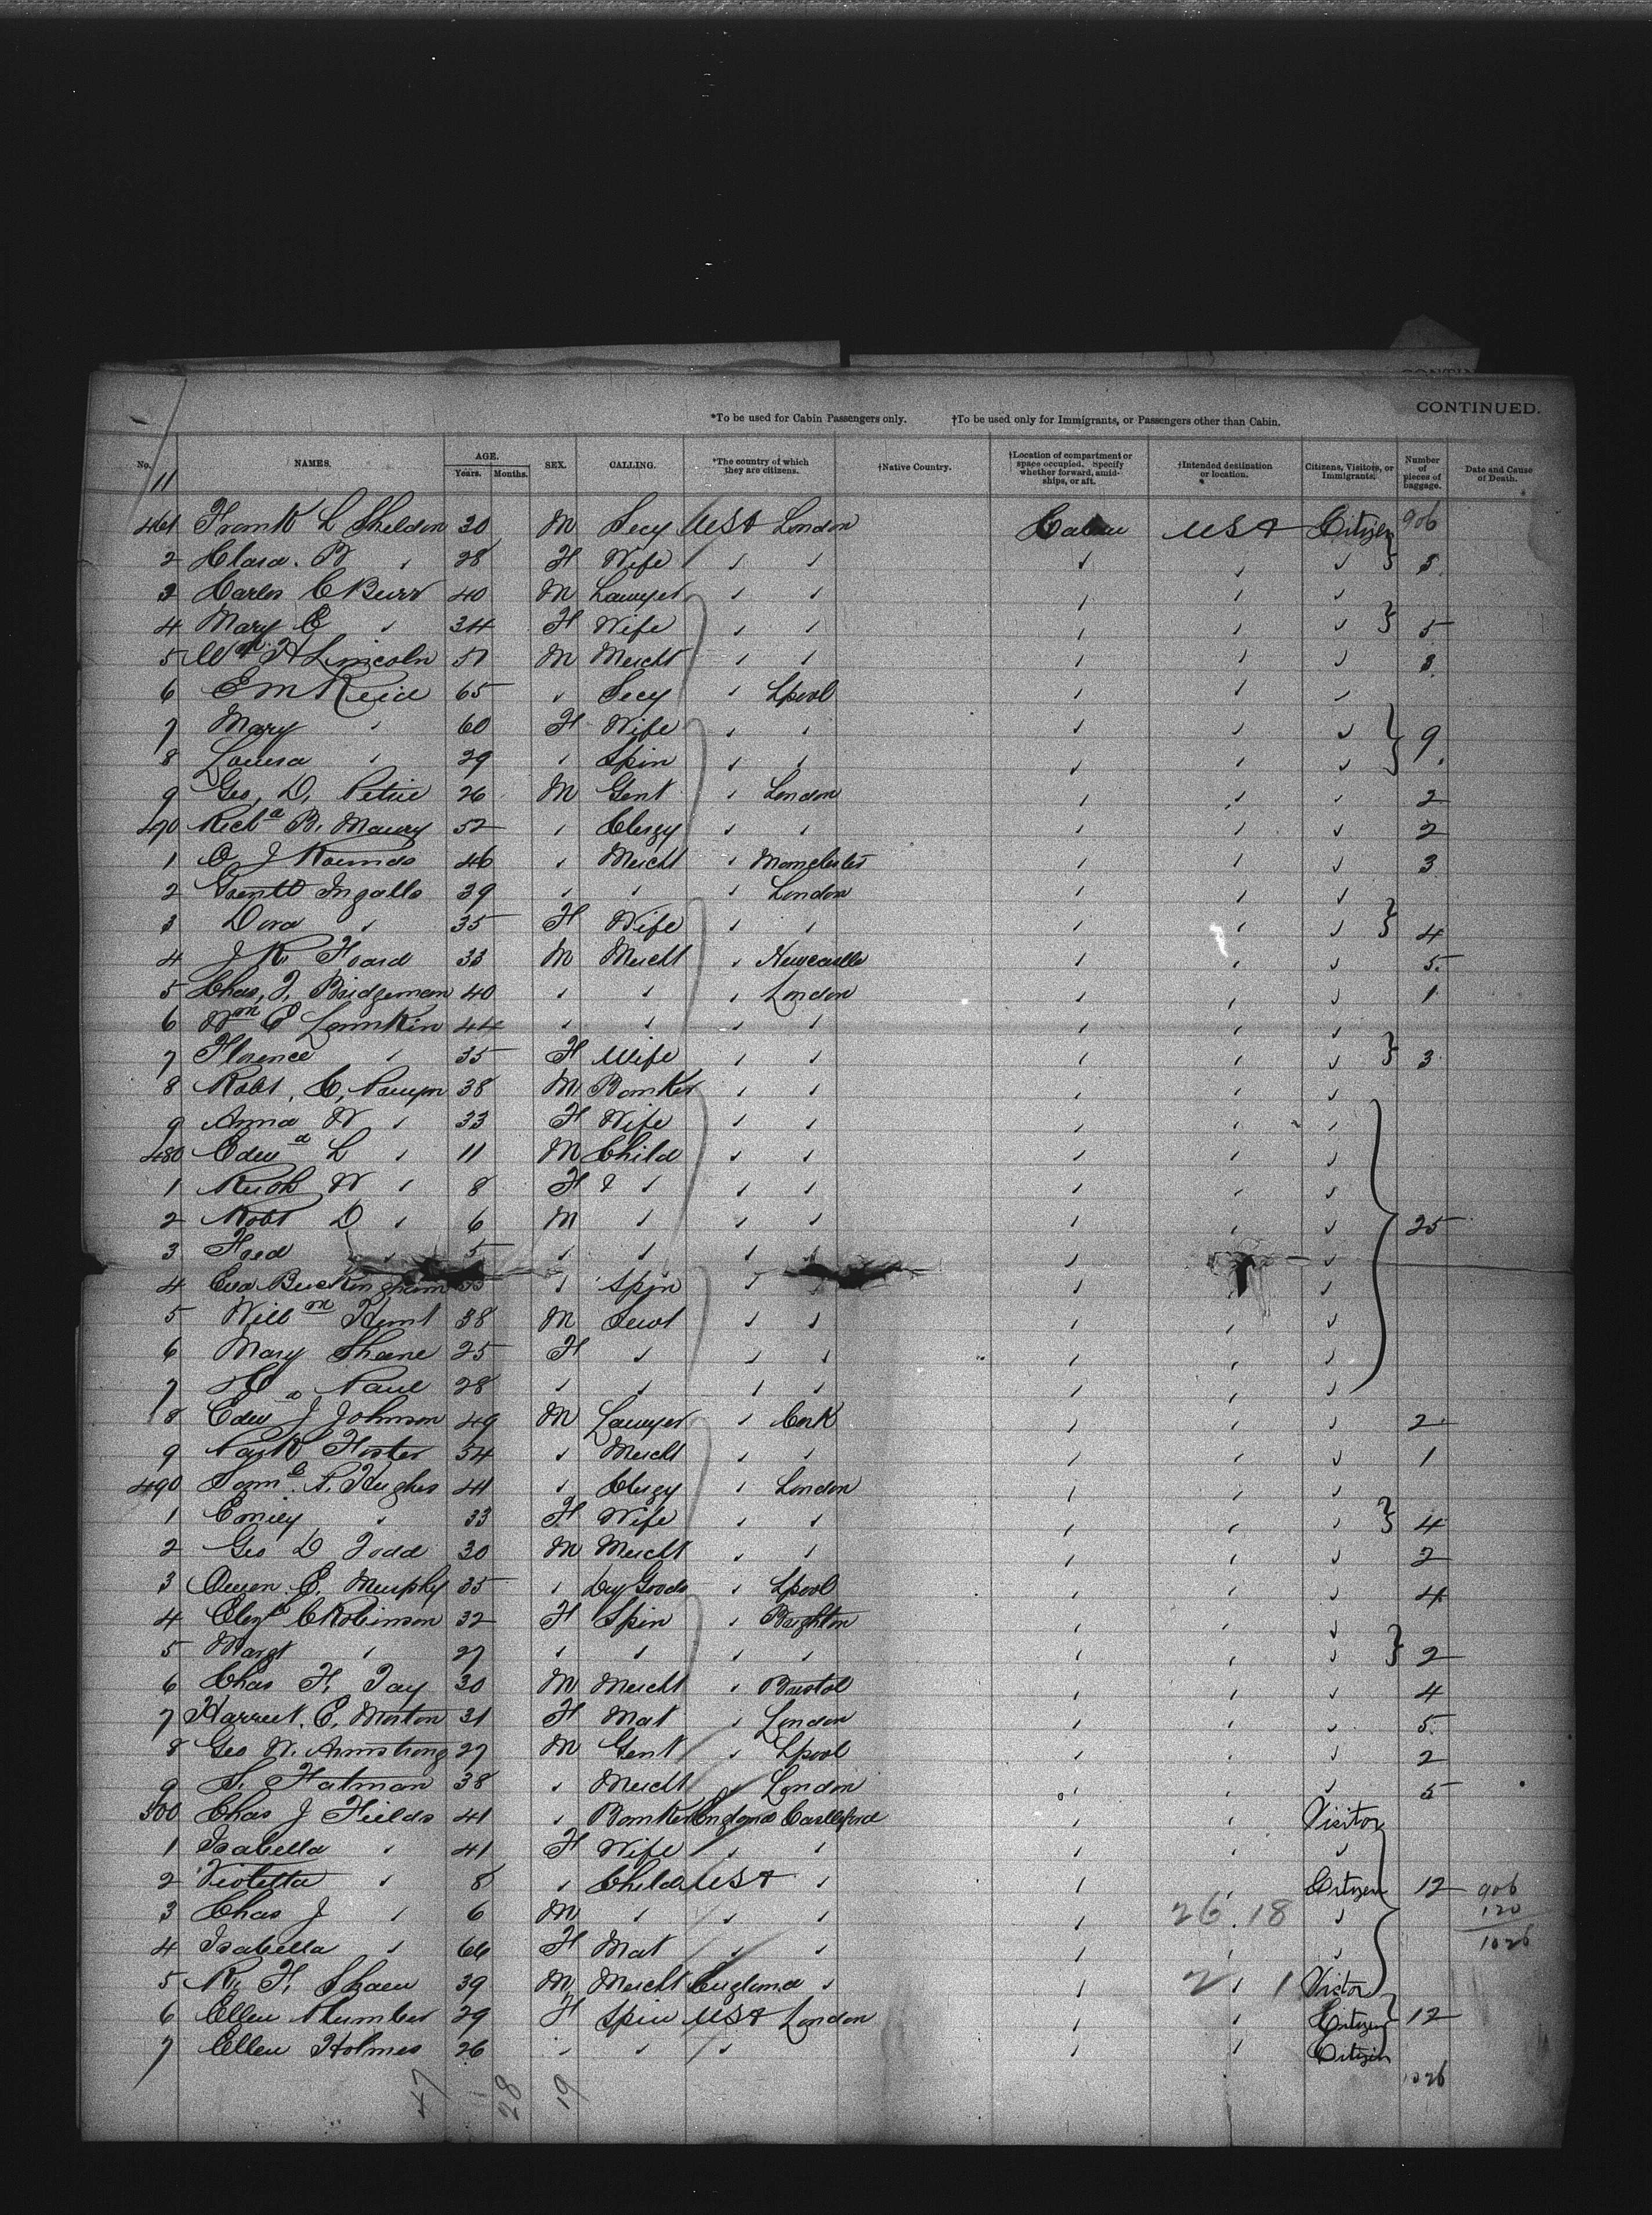 CONTIN
CONTINUED.
*To be used for Cabin Passengers only. †To be used only for Immigrants, or Passengers other than Cabin.
No. NAMES. AGE. Years. Months. SEX. CALLING. *The country of which they are citizens. †Native Country. †Location of compartment or space occupied. Specify whether forward, amidships, or aft. †Intended destination or location. Citizens, Visitors, or Immigrants. Number of pieces of baggage. Date and Cause of Death.
11
461 Frank L Sheldon 30 M Secy USA London Cabin USA Citizen 906
2 Clara. B " 28 F Wife " " " " " 5
3 Carlos C Burr 40 M Lawyer " " " " "
4 Mary E " 34 F Wife " " " " " 5
5 Wm H Lincoln 57 M Mercht " " " " " 3
6 E M Reid 65 " Secy " Lpool " " "
7 Mary " 60 F Wife " " " " "
8 Louisa " 29 " Spin " " " " " 9
9 Geo. D. Petrie 26 M Gent " London " " " 2
470 Richd B. Maury 52 " Clergy " " " " " 2
1 O J Rounds 46 " Mercht " Manchester " " " 3
2 Ingalls 39 " " " London " " "
3 Dora " 35 F Wife " " " " " 4
4 J R Hoard 33 M Mercht " Newcastle " " " 5
5 Chas. J. Bridgeman 40 " " " London " " " 1
6 Wm P Lamkin 44 " " " " " " "
7 Florence " 35 F Wife " " " " " 3
8 Robt. C. 38 M Banker " " " " "
9 Anna W " 33 F Wife " " " " "
480 Edwd L " 11 M Child " " " " "
1 Ruth W " 8 F " " " " " "
2 Robt D " 6 M " " " " " " 25
3 " 5 " " " " " " "
4 Eva Buckingham " Spin " " " " "
5 Willm Kent 38 M Servt " " " " "
6 Mary Shane 25 F " " " " " "
7 Paul 28 " " " " " " "
8 Edwd J Johnson 49 M Lawyer " Cork " " " 2
9 Foster 54 " Mercht " " " " " 1
490 Saml. P. Hughes 41 " Clergy " London " " "
1 Emily " 33 F Wife " " " " " 4
2 Geo D Todd 30 M Mercht " " " " " 2
3 Owen. E. Murphy 35 " Dry Goods " Lpool " " " 4
4 C Robinson 32 F Spin " Brighton " " "
5 Margt " 27 " " " " " " " 2
6 Chas F. Tay 30 M Mercht " Bristol " " " 4
7 Harriet. E. Morton 31 F Mat " London " " " 5
8 Geo W. Armstrong 27 M Gent " Lpool " " " 2
9 S. Hatman 38 " Mercht " London " " " 5
500 Chas J Fields 41 " Banker England Castleford " " Visitor
1 Isabella " 41 F Wife " " " " "
2 Violetta " 8 " Child USA " " " Citizen 12 906
3 Chas J " 6 M " " " " 26.18 " 120
4 Isabella " 66 F Mat " " " " " 1026
5 R. F. Shaw 39 M Mercht England " " 2 " 1 Visitor
6 Ellen Plumber 29 F Spin USA London " " Citizen 12
7 Ellen Holmes 26 " " " " " Citizen
47 28 19 1026